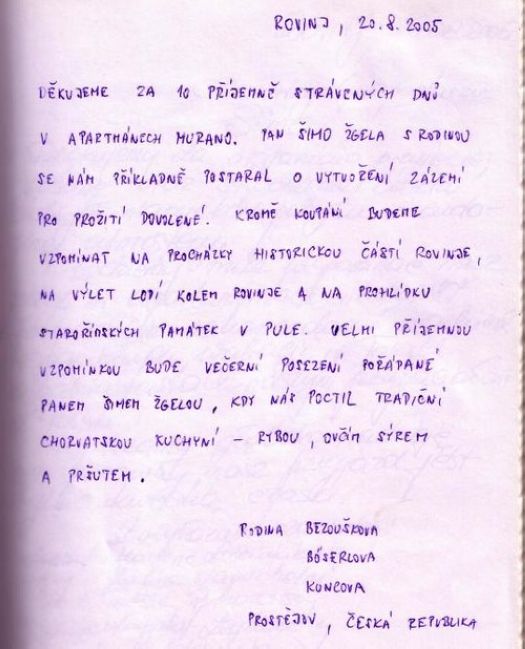 ROVINJ, 20.8.2005
DĚKUJEME ZA 10 PŘÍJEMNĚ STRÁVENÝCH DNŮ
V APARTMÁNECH MURANO. PAN ŠIMO ŽGELA S RODINOU
SE NÁM PŘÍKLADNĚ POSTARAL O VYTVOŘENÍ ZÁZEMÍ
PRO PROŽITÍ DOVOLENÉ. KROMĚ KOUPÁNÍ BUDEME
VZPOMÍNAT NA PROCHÁZKY HISTORICKOU ČÁSTÍ ROVINJE,
NA VÝLET LODÍ KOLEM ROVINJE A NA PROHLÍDKU
STAROŘÍMSKÝCH PAMÁTEK V PULE. VELMI PŘÍJEMNOU
VZPOMÍNKOU BUDE VEČERNÍ POSEZENÍ POŘÁDANÉ
PANEM ŠIMEM ŽGELOU, KDY NÁS POCTIL TRADIČNÍ
CHORVATSKOU KUCHYNÍ - RYBOU, OVČÍM SÝREM
A PRŠUTEM.
RODINA BEZOUŠKOVA
BÖSERLOVA
KUNCOVA
PROSTĚJOV, ČESKÁ REPUBLIKA